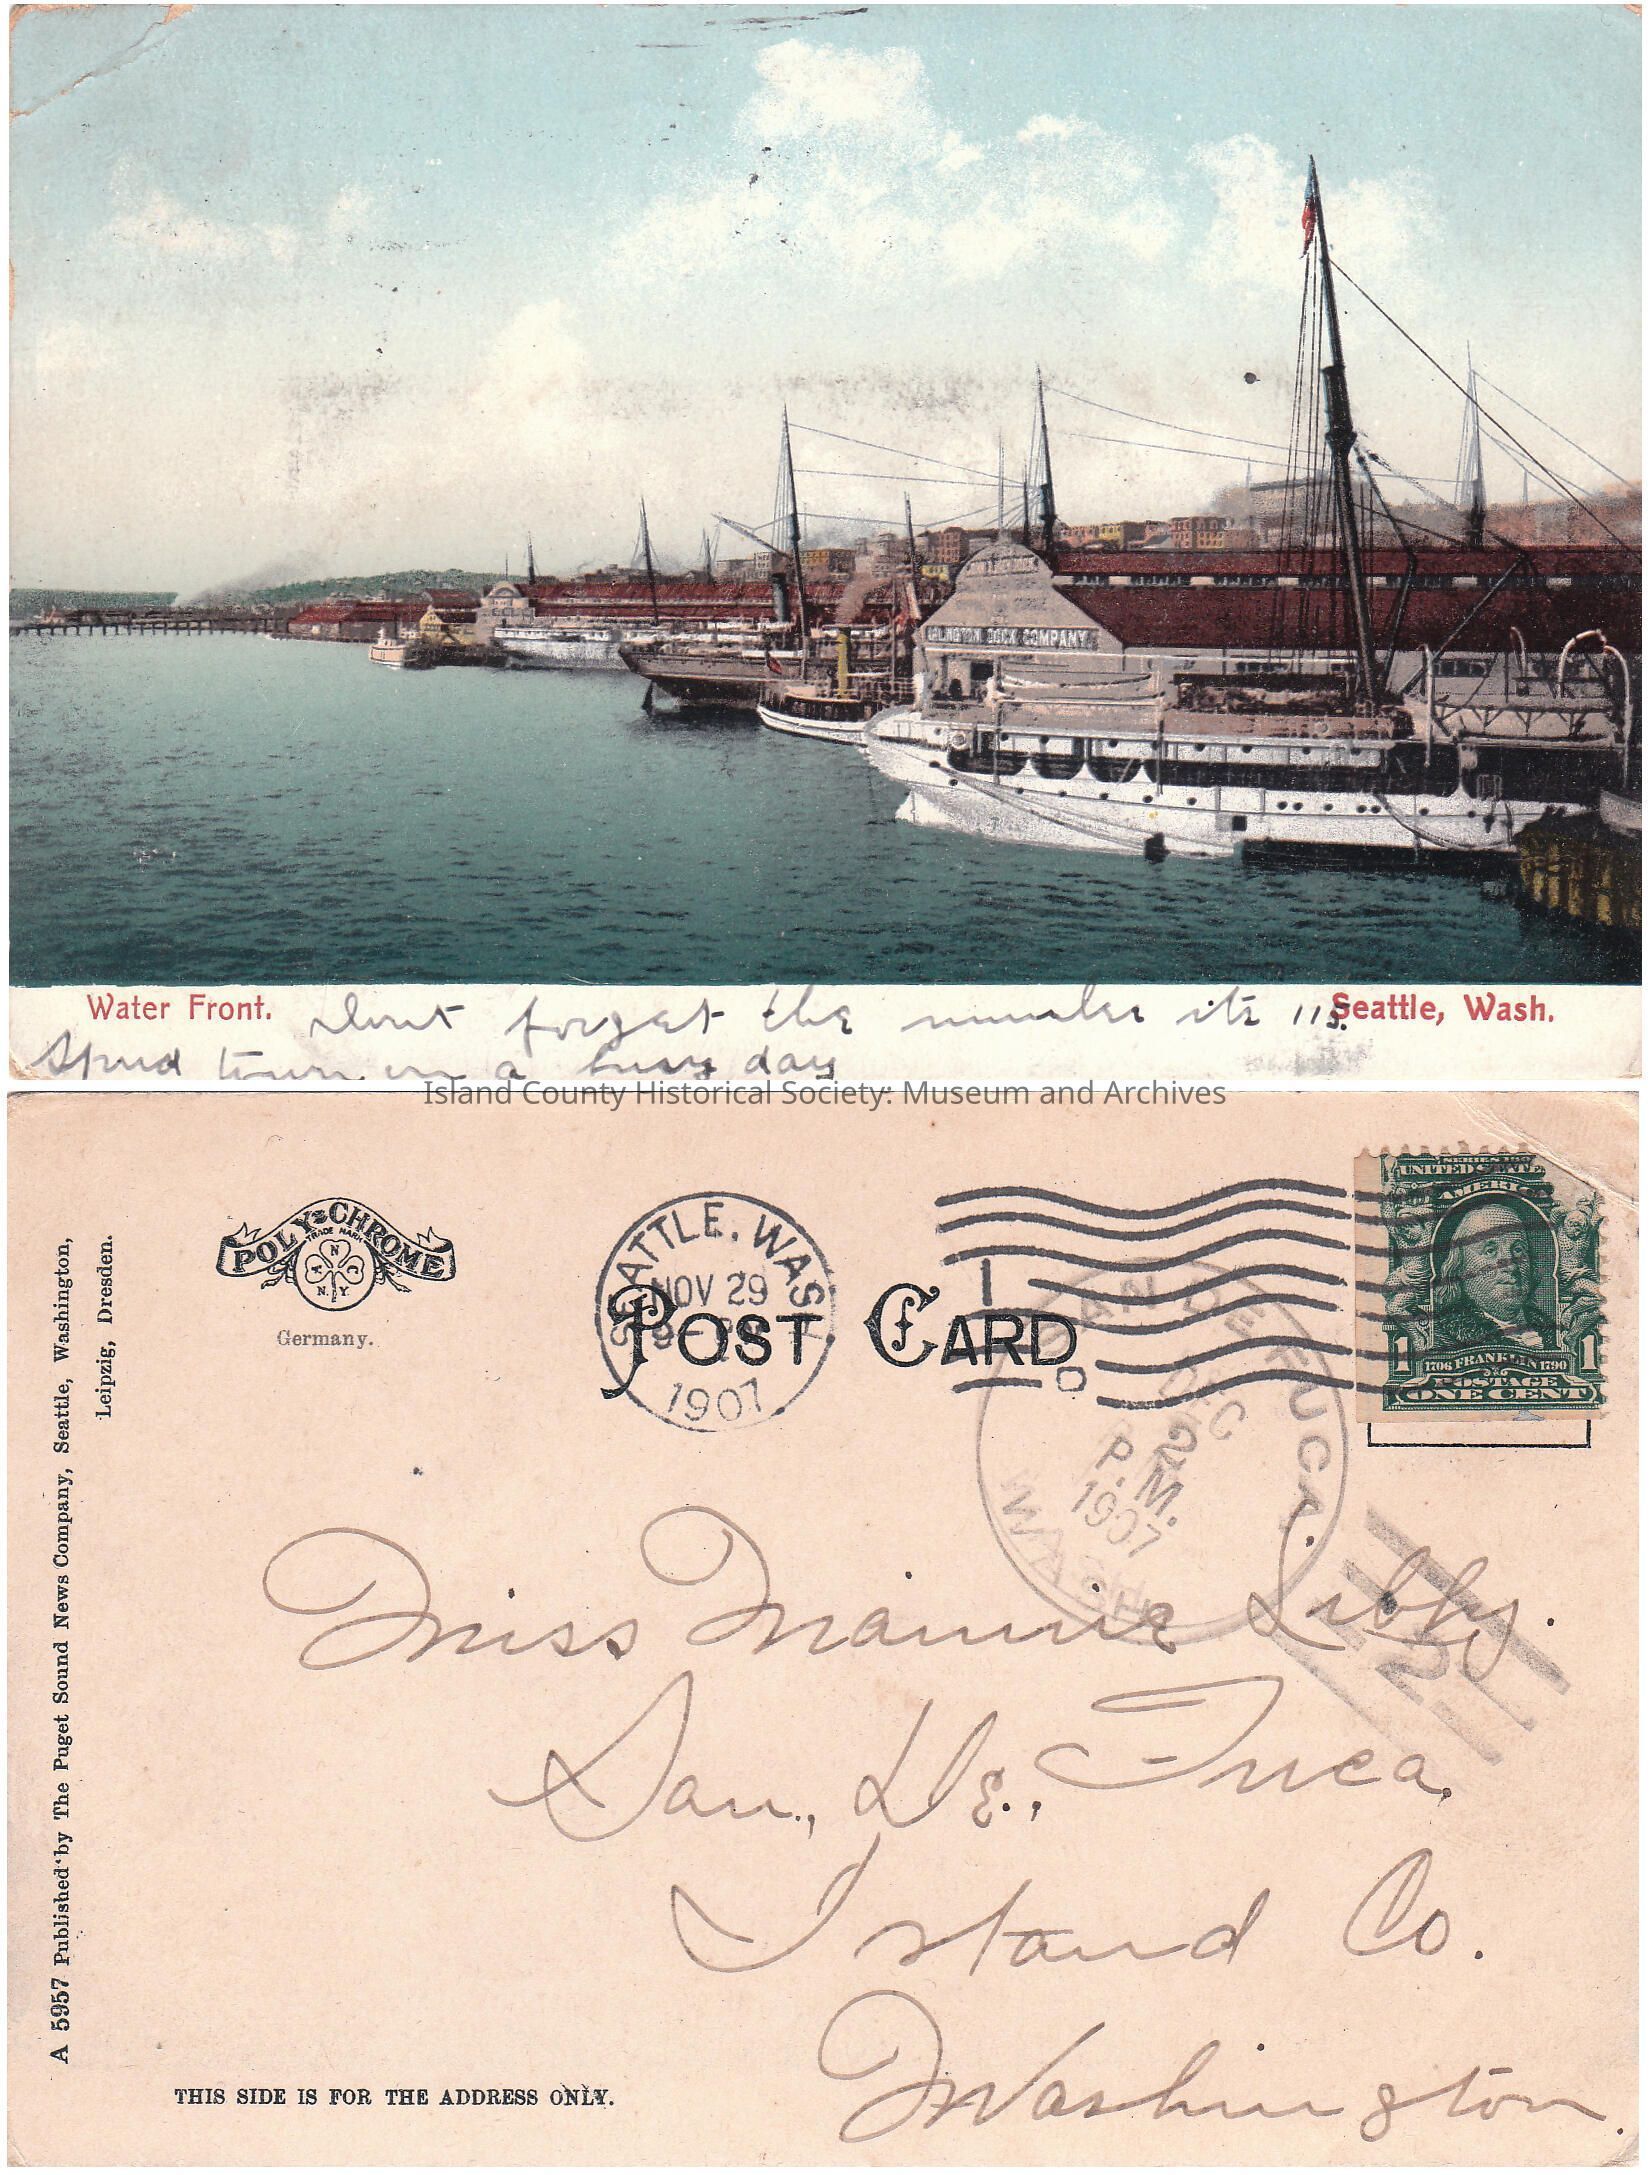 ARLINGTON DOCK COMPANY
Water Front.
Seattle, Wash.
Dont forget the number its 115.
Spud town on a busy day
Island County Historical Society: Museum and Archives
POLY-CHROME
TRADE MARK
N
A C
N.Y.
Germany.
SEATTLE. WASH
NOV 29
9-
1907
1
POST CARD
SAN DE FUCA.
WASH
DEC
2
P.M.
1907
2
UNITED STATES
AMERICA
1 1706 FRANKLIN 1790 1
POSTAGE
ONE CENT
Miss Mamie Libby.
San., De., Fuca.
Island Co.
Washington.
A 5957 Published by The Puget Sound News Company, Seattle, Washington,
Leipzig, Dresden.
THIS SIDE IS FOR THE ADDRESS ONLY.